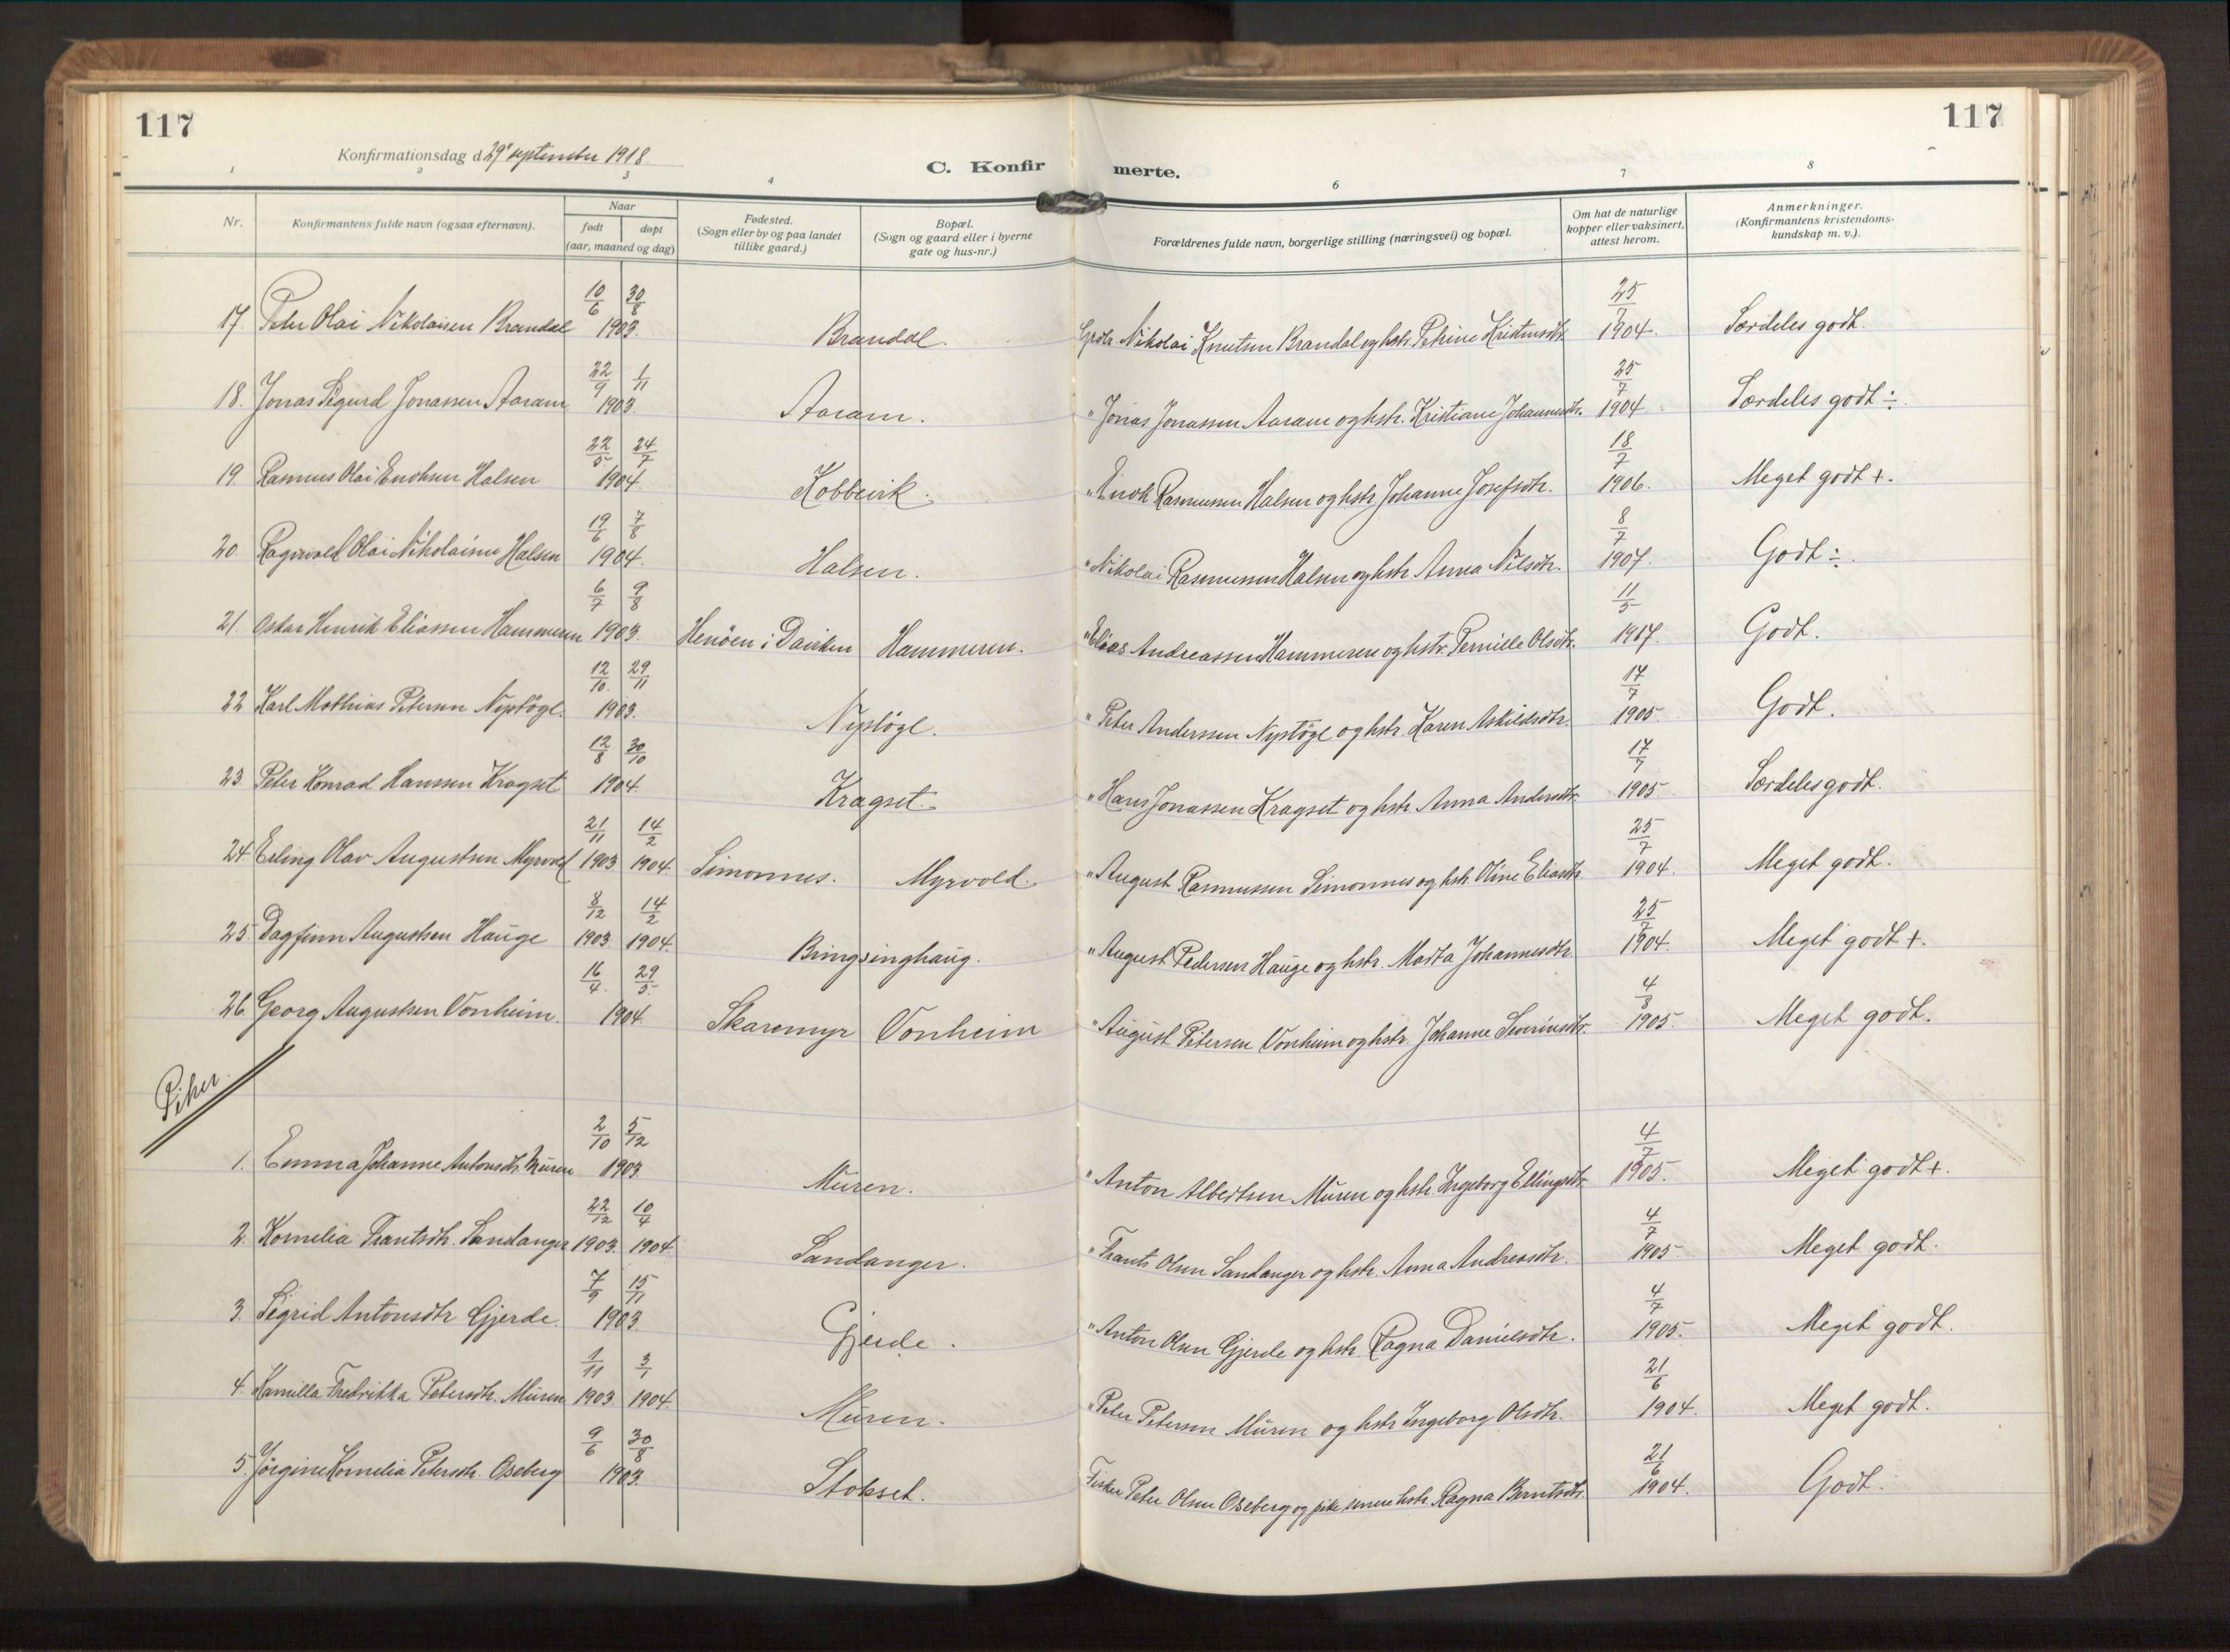 117
117
Konfirmationsdag d 29' september 1918.
C. Konfirmerte.
1 2 3 4 6 7 8
Nr.
Konfirmantens fulde navn (ogsaa efternavn).
Naar
født
døpt
(aar, maaned og dag)
Fødested.
(Sogn eller by og paa landet
tillike gaard.)
Bopæl.
(Sogn og gaard eller i byerne
gate og hus-nr.)
Forældrenes fulde navn, borgerlige stilling (næringsvei) og bopæl.
Om hat de naturlige
kopper eller vaksinert,
attest herom.
Anmerkninger.
(Konfirmantens kristendoms-
kundskap m. v.).
10/6 30/8 25/7
17. Peter Olai Nikolaisen Brandal 1903. Brandal. Nikolai Knutsen Brandal og hstr. Petrine Kristensdtr. 1904. Særdeles godt.
22/9 1/11 25/7
18. Jonas Sigurd Jonassen Aaram 1903. Aaram. " Jonas Jonassen Aaram og hstr. Kristiane Johannesdtr. 1904 Særdeles godt ÷.
22/5 24/7 18/7
19. Rasmus Olai Enoksen Halsen 1904. Kobbevik. " Enok Rasmussen Halsen og hstr. Johanne Josefsdtr. 1906. Meget godt +.
19/6 7/8 8/7
20 Ragnvald Olai Nikolaisen Halsen 1904. Halsen. " Nikolai Rasmussen Halsen og hstr. Anna Nilsdtr. 1907. Godt ÷.
6/7 9/8 11/5
21. Oskar Henrik Eliassen Hammeren 1903. Henøen i Daviken Hammeren. " Elias Andreassen Hammeren og hstr. Pernille Olsdtr. 1917. Godt.
12/10. 29/11 17/7
22 Karl Mathias Petersen Nyptøgl. 1903. Nyptøgl. " Peter Anderssen Nyptøgl og hstr. Karen Askildsdtr. 1905. Godt.
12/8 30/10 17/7
23. Peter Konrad Hanssen Kragset 1904. Kragset. " Hans Jonassen Kragset og hstr. Anna Andersdtr. 1905. Særdeles godt.
21/11 14/2 25/7
24 Erling Olav Augustsen Myrvold 1903 1904. Simonnes. Myrvold. " August Rasmussen Simonnes og hstr. Oline Eliasdtr. 1904. Meget godt.
8/12 14/2 25/7
25. Dagfinn Augustsen Hauge 1903. 1904. Bringsinghaug. " August Pedersen Hauge og hstr. Marta Johannesdtr. 1904. Meget godt +.
16/4. 29/5. 4/8
26. Georg Augustsen Vonheim. 1904. Skaremyr Vonheim " August Petersen Vonheim og hstr. Johanne Severinsdtr. 1905. Meget godt.
Piker.
2/10 5/12 4/7
1. Emma Johanne Antonsdtr. Muren 1903 Muren. " Anton Albertsen Muren og hstr. Ingeborg Ellingsdtr. 1905. Meget godt +.
22/12 10/4 4/7
2. Kornelia Frantsdtr. Sandanger 1903. 1904. Sandanger. " Frants Olsen Sandanger og hstr. Anna Andreasdtr. 1905. Meget godt.
7/9 15/11 4/7
3. Sigrid Antonsdtr Gjerde. 1903. Gjerde. " Anton Olsen Gjerde og hstr. Ragna Danielsdtr. 1905. Meget godt.
1/11 3/1 21/6
4. Kamilla Fredrikka Petersdtr. Muren 1903. 1904. Muren. " Peter Petersen Muren og hstr Ingeborg Olsdtr. 1904. Meget godt.
9/6 30/8 21/6
5. Jørgine Kornelia Petersdtr. Oseberg 1903. Stokset. Fisker Peter Olsen Oseberg og pike senere hstr. Ragna Berntsdtr. 1904. Godt.